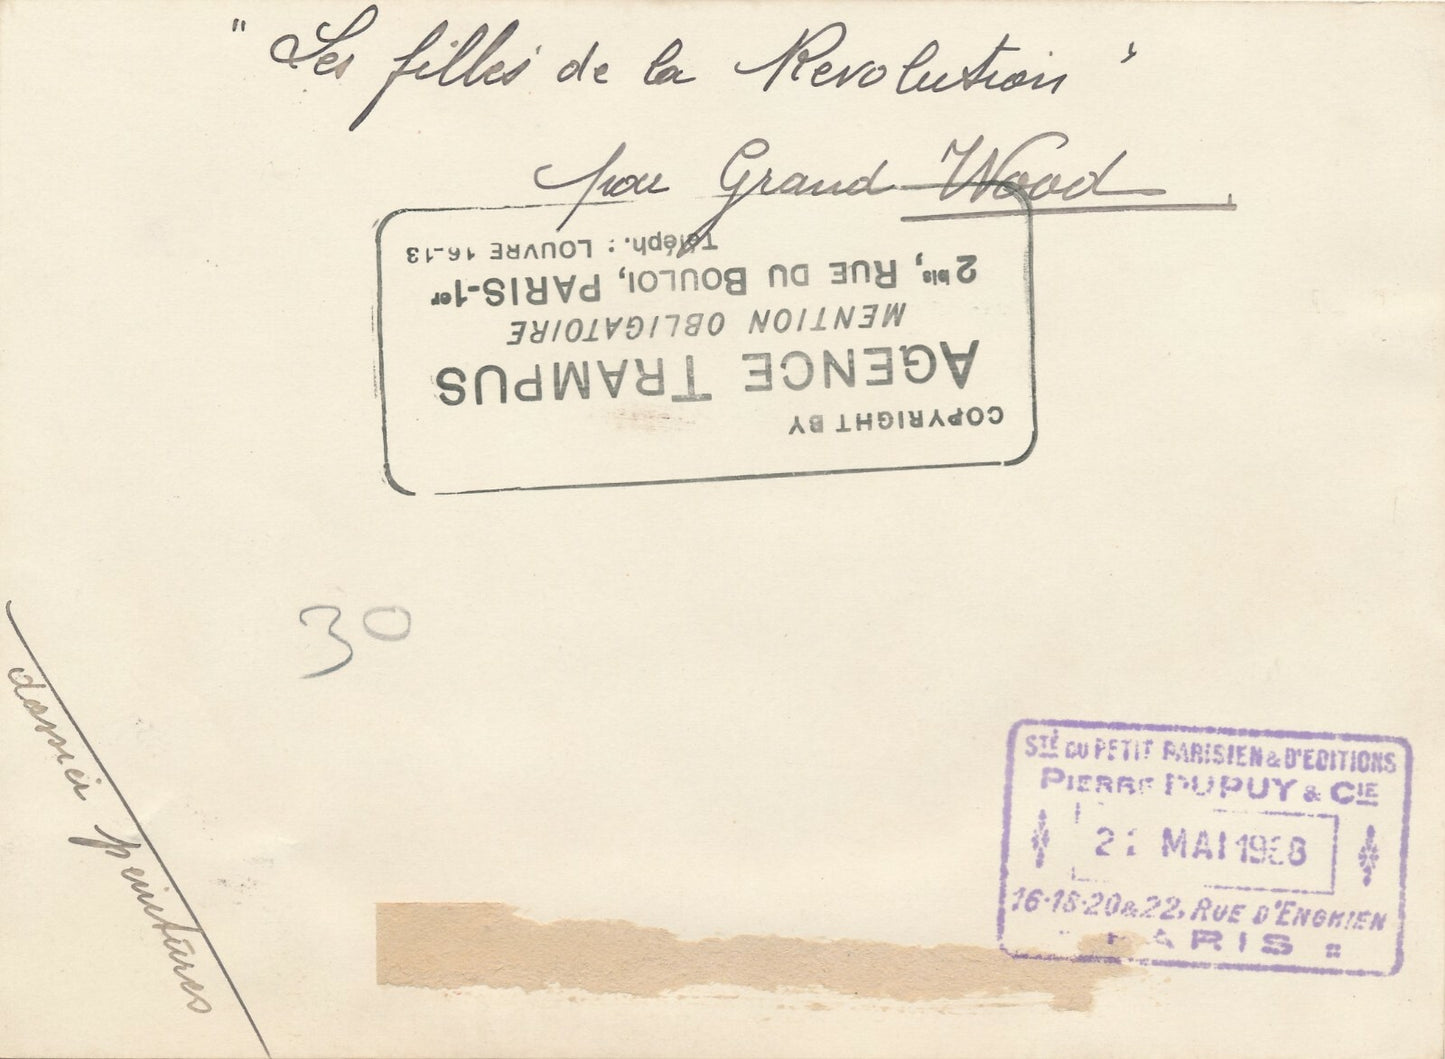 " Les filles de la Revolution "
par Grand Wood
COPYRIGHT BY
AGENCE TRAMPUS
MENTION OBLIGATOIRE
2bis, RUE DU BOULOI, PARIS-1er
Téléph. : LOUVRE 16-13
30
dossier peintures
STÉ DU PETIT PARISIEN & D'EDITIONS
PIERRE DUPUY & CIE
MAI 1938
16·18·20 & 22, RUE D'ENGHIEN
PARIS